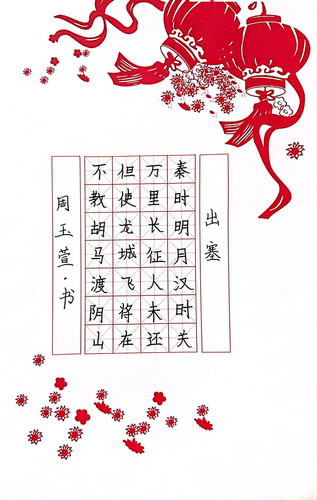 出塞
秦时明月汉时关
万里长征人未还
但使龙城飞将在
不教胡马渡阴山
周玉萱·书